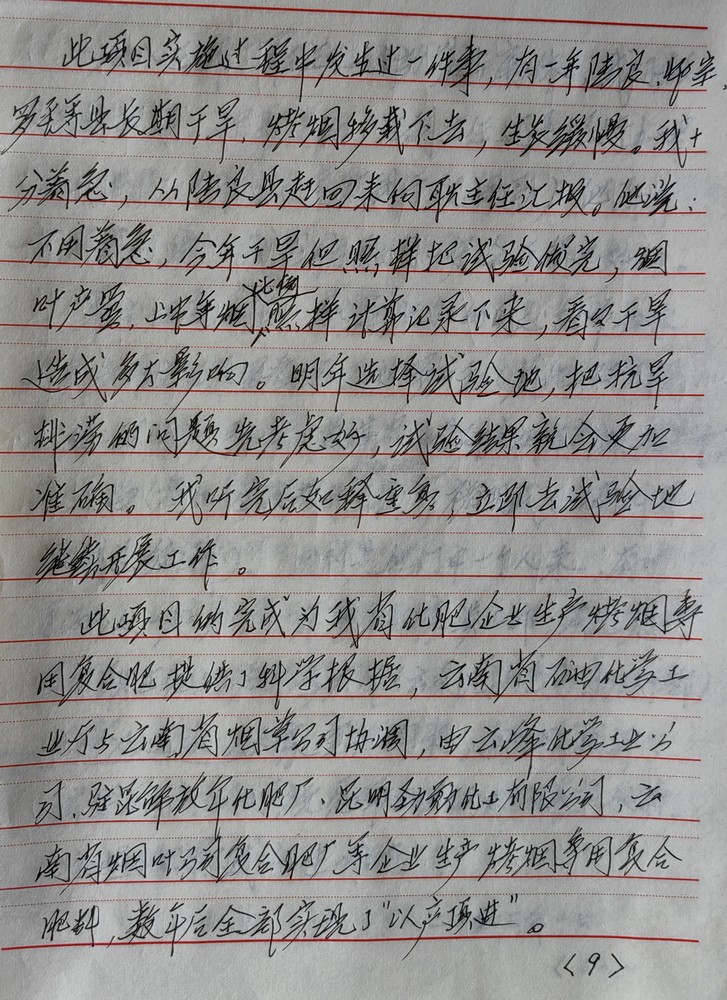 此项目实施过程中发生过一件事，有一年陆良、师宗、
罗平等县长期干旱，烤烟移栽下去，生长缓慢。我十
分着急，从陆良县赶回来向耿主任汇报。他说：
不用着急，今年干旱但照样把试验做完，烟
叶产量，上中等烟比例照样计算记录下来，看以干旱
造成多大影响。明年选择试验地，把抗旱
排涝的问题先考虑好，试验结果就会更加
准确。我听完后如释重负，立即去试验地
继续开展工作。
此项目的完成为我省化肥企业生产烤烟专
用复合肥提供了科学根据，云南省石油化学工
业厅与云南省烟草公司协调，由云峰化学工业公
司、驻昆解放军化肥厂、昆明劲勋化工有限公司、云
南省烟叶公司复合肥厂等企业生产烤烟专用复合
肥料，数年后全部实现了“以产顶进”。
〈9〉